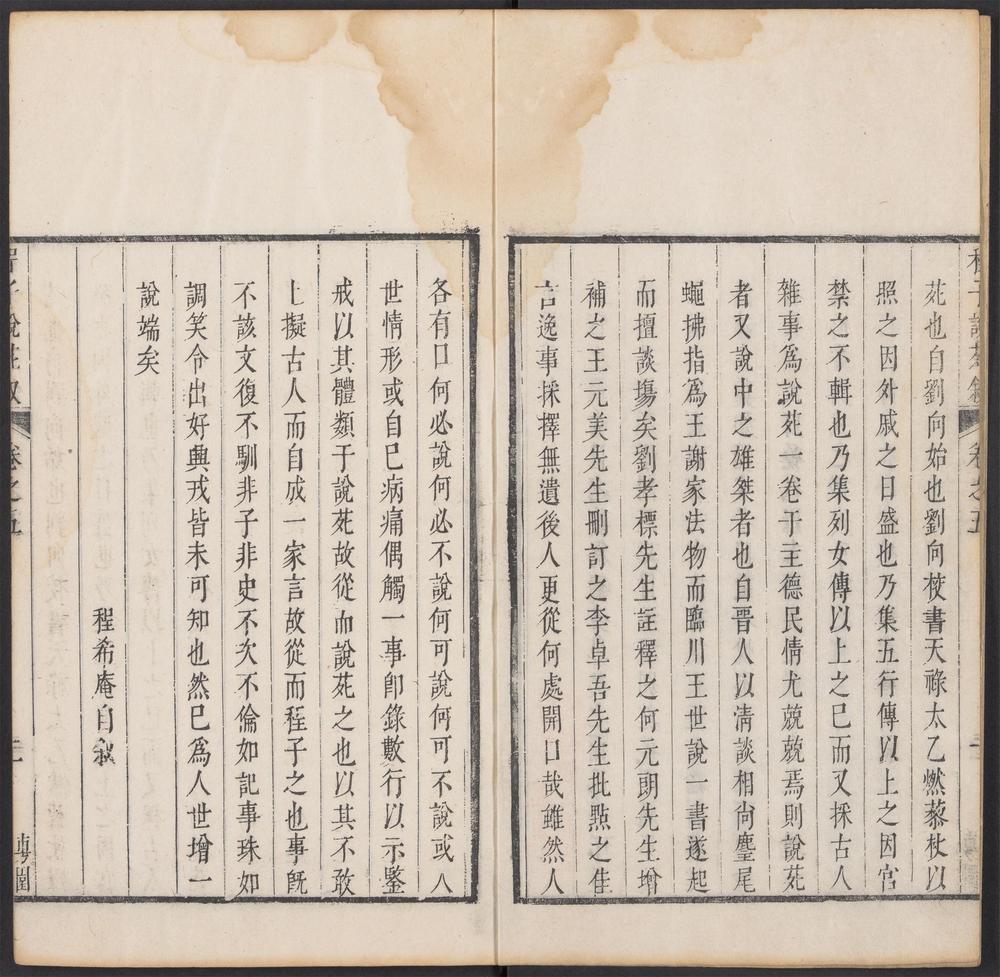 苑也自劉向始也劉向校書天祿太乙燃藜杖以
照之因外戚之日盛也乃集五行傳以上之因宮
禁之不輯也乃集列女傳以上之已而又採古人
雜事爲說苑一卷于主德民情尤兢兢焉則說苑
者又說中之雄桀者也自晋人以清談相尚麈尾
蠅拂指爲王謝家法物而臨川王世說一書遂起
而擅談塲矣劉孝標先生註釋之何元朗先生增
補之王元美先生刪訂之李卓吾先生批點之佳
言逸事採擇無遺後人更從何處開口哉雖然人
各有口何必說何必不說何可說何可不說或人
世情形或自巳病痛偶觸一事卽錄數行以示鑒
戒以其體類于說苑故從而說苑之也以其不敢
上擬古人而自成一家言故從而程子之也事旣
不該文復不馴非子非史不次不倫如記事珠如
調笑令出好興戎皆未可知也然巳爲人世增一
說端矣
程希庵自敘
卷之五
二